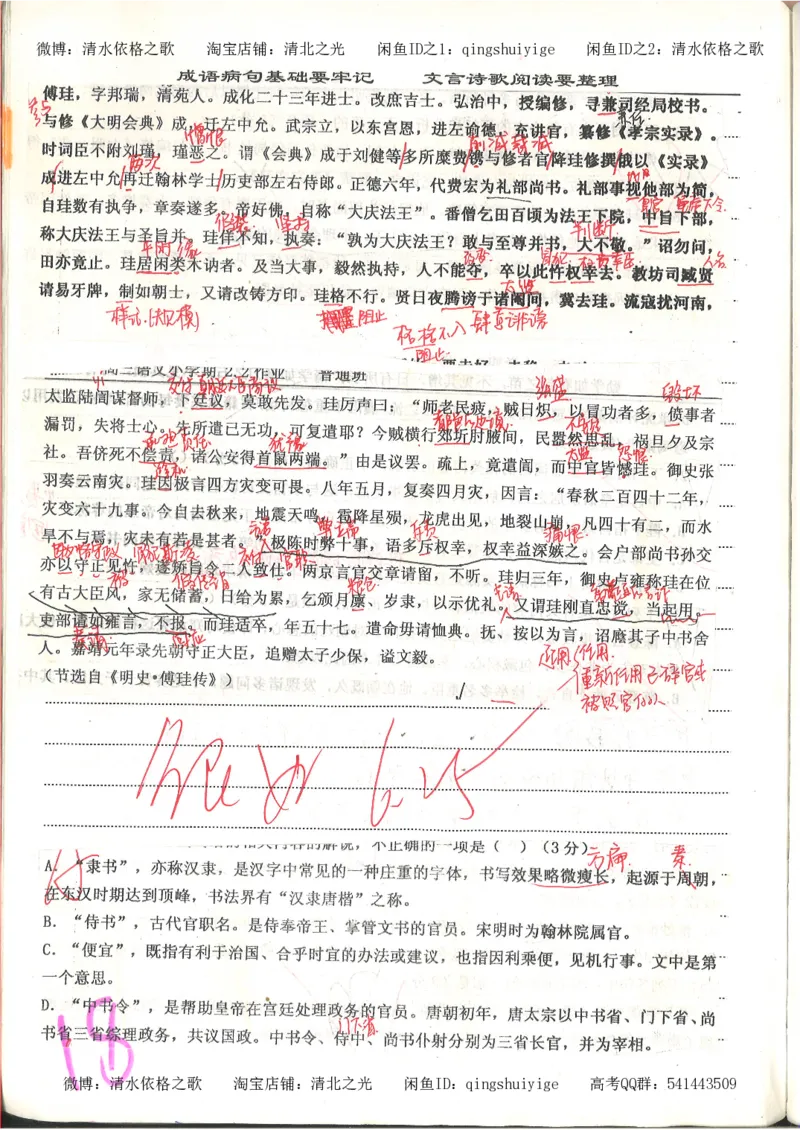 微博：清水依格之歌 淘宝店铺：清北之光 闲鱼ID之1：qingshuiyige 闲鱼ID之2：清水依格之歌
成语病句基础要牢记 文言诗歌阅读要整理
傅珪，字邦瑞，清苑人。成化二十三年进士。改庶吉士。弘治中，授编修，寻兼司经局校书。
与修《大明会典》成，迁左中允。武宗立，以东宫恩，进左谕德，充讲官，纂修《孝宗实录》。
时词臣不附刘瑾，瑾恶之。谓《会典》成于刘健等多所糜费，镌与修者官，降珪修撰。俄以《实录》
成进左中允，再迁翰林学士，历吏部左右侍郎。正德六年，代费宏为礼部尚书。礼部事视他部为简，
自珪数有执争，章奏遂多。帝好佛，自称“大庆法王”。番僧乞田百顷为法王下院，中旨下部，
称大庆法王与圣旨并。珪佯不知，执奏：“孰为大庆法王？敢与至尊并书，大不敬。”诏勿问，
田亦竟止。珪居闲类木讷者。及当大事，毅然执持，人不能夺，卒以此忤权幸去。教坊司臧贤
请易牙牌，制如朝士，又请改铸方印。珪格不行。贤日夜腾谤于诸阉间，冀去珪。流寇扰河南，
阻止
样式(规模)
肆意诽谤
阻止
高三语文小学期2.2作业 普通班
太监陆訚谋督师，下廷议，莫敢先发。珪厉声曰：“师老民疲，贼日炽，以冒功者多，偾事者
漏罚，失将士心。先所遣已无功，可复遣耶？今贼横行郊圻肘腋间，民嚣然思乱，祸旦夕及宗
社。吾侪死不偿责，诸公安得首鼠两端。”由是议罢。疏上，竟遣訚，而中官皆憾珪。御史张
羽奏云南灾。珪因极言四方灾变可畏。八年五月，复奏四月灾，因言：“春秋二百四十二年，
灾变六十九事。今自去秋来，地震天鸣，雹降星殒，龙虎出见，地裂山崩，凡四十有二，而水
旱不与焉，灾未有若是甚者。”极陈时弊十事，语多斥权幸，权幸益深嫉之。会户部尚书孙交
亦以守正见忤，遂矫旨令二人致仕。两京言官交章请留，不听。珪归三年，御史卢雍称珪在位
有古大臣风，家无储蓄，日给为累，乞颁月廪、岁隶，以示优礼。又谓珪刚直忠谠，当起用。
吏部请如雍言，不报。而珪适卒，年五十七。遣命毋请恤典。抚、按以为言，诏廕其子中书舍
人。嘉靖元年录先朝守正大臣，追赠太子少保，谥文毅。
(节选自《明史•傅珪传》)
启用/任用
重新任用已辞官或
被罢官的人
的相关内容的解说，不正确的一项是（ ）(3分)
A．“隶书”，亦称汉隶，是汉字中常见的一种庄重的字体，书写效果略微瘦长，起源于周朝，
在东汉时期达到顶峰，书法界有“汉隶唐楷”之称。
B．“侍书”，古代官职名。是侍奉帝王、掌管文书的官员。宋明时为翰林院属官。
C．“便宜”，既指有利于治国、合乎时宜的办法或建议，也指因利乘便，见机行事。文中是第
一个意思。
D．“中书令”，是帮助皇帝在宫廷处理政务的官员。唐朝初年，唐太宗以中书省、门下省、尚
书省三省综理政务，共议国政。中书令、侍中、尚书仆射分别为三省长官，并为宰相。
18
微博：清水依格之歌 淘宝店铺：清北之光 闲鱼ID：qingshuiyige 高考QQ群：541443509